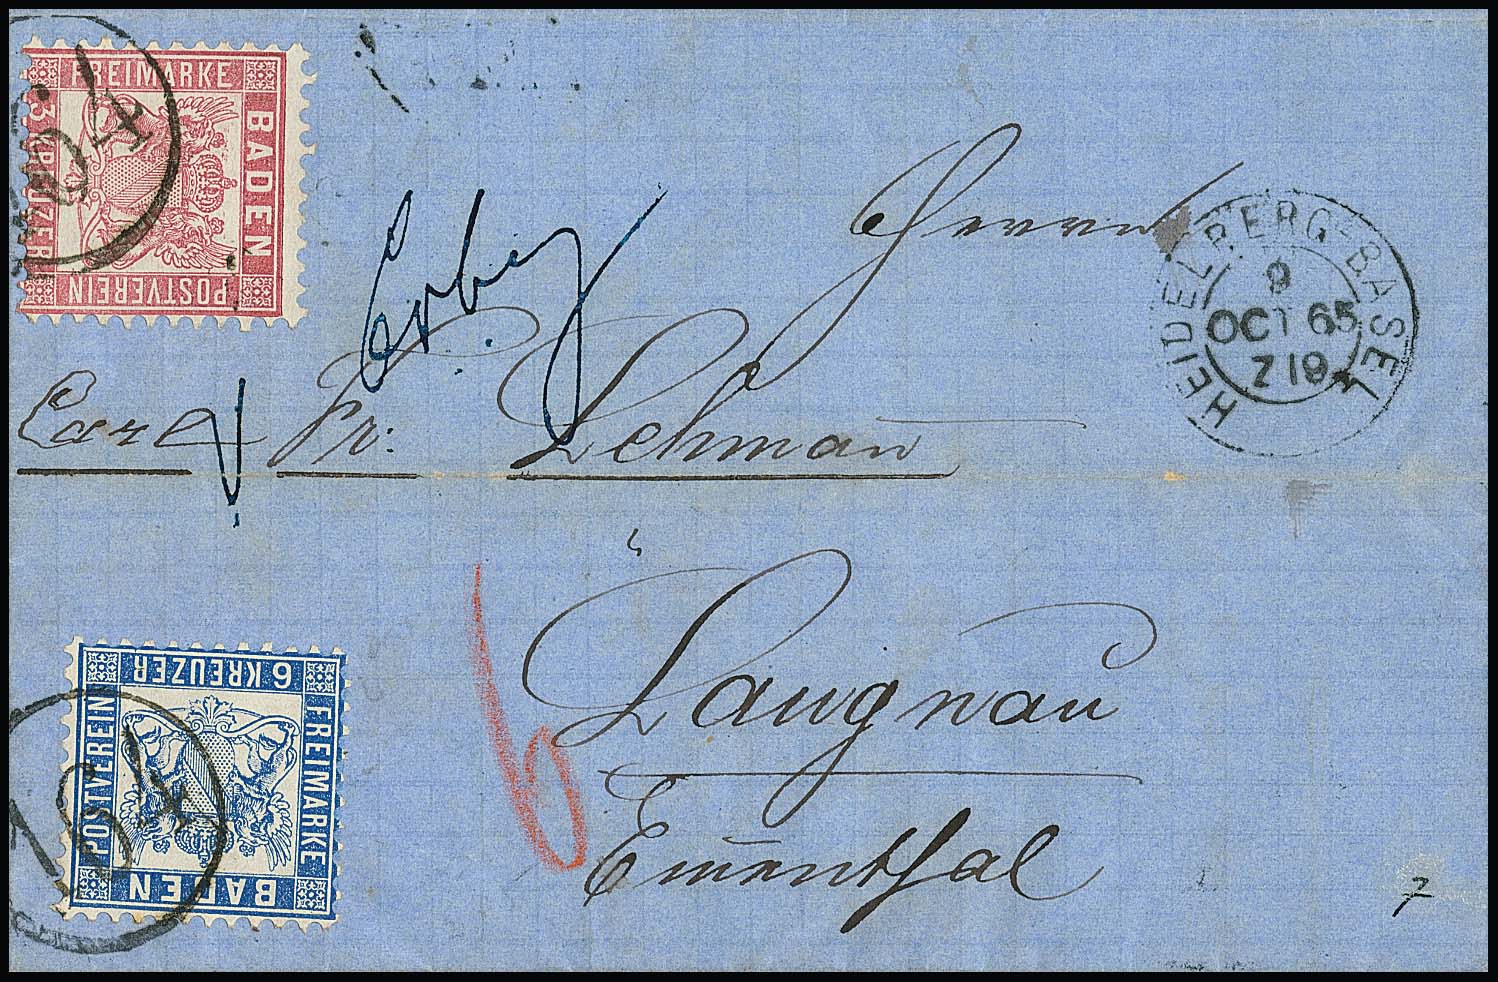 FREIMARKE
BADEN
POSTVEREIN
3 KREUZER
164
Herrn
HEIDELBERG-BASEL
9
OCT 65
Z 19
Carl Fr: Lehman̄
Langnau
Em̄enthal
6
6 KREUZER
FREIMARKE
BADEN
POSTVEREIN
164
7